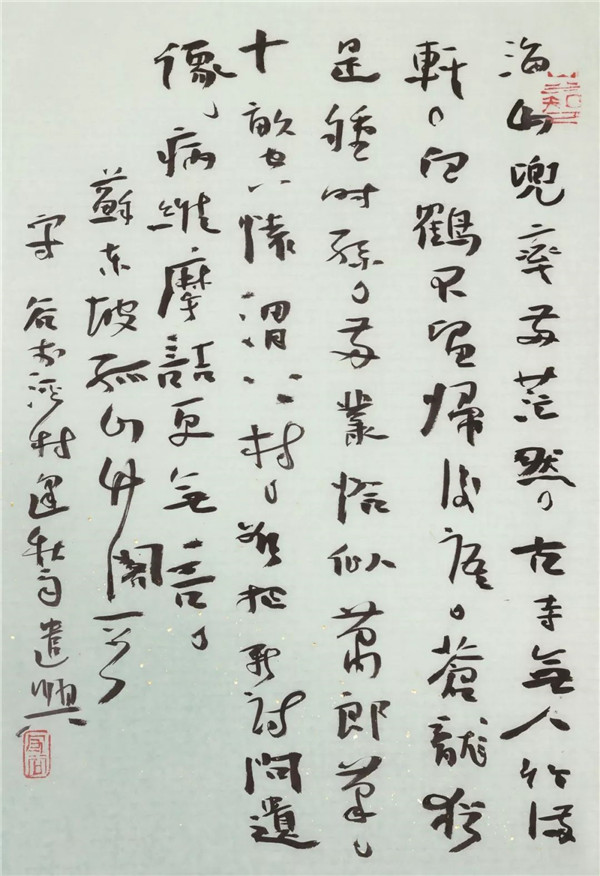 海山兜率兩茫然。古寺無人竹滿
軒。白鶴不留歸後語。蒼龍猶
是種時孫。兩叢恰似蕭郎筆。
十畝空懷渭上村。欲把新詩問遺
像、病維摩詰更無言。
蘇東坡孤山竹閣一首
守谷於村秋遣興